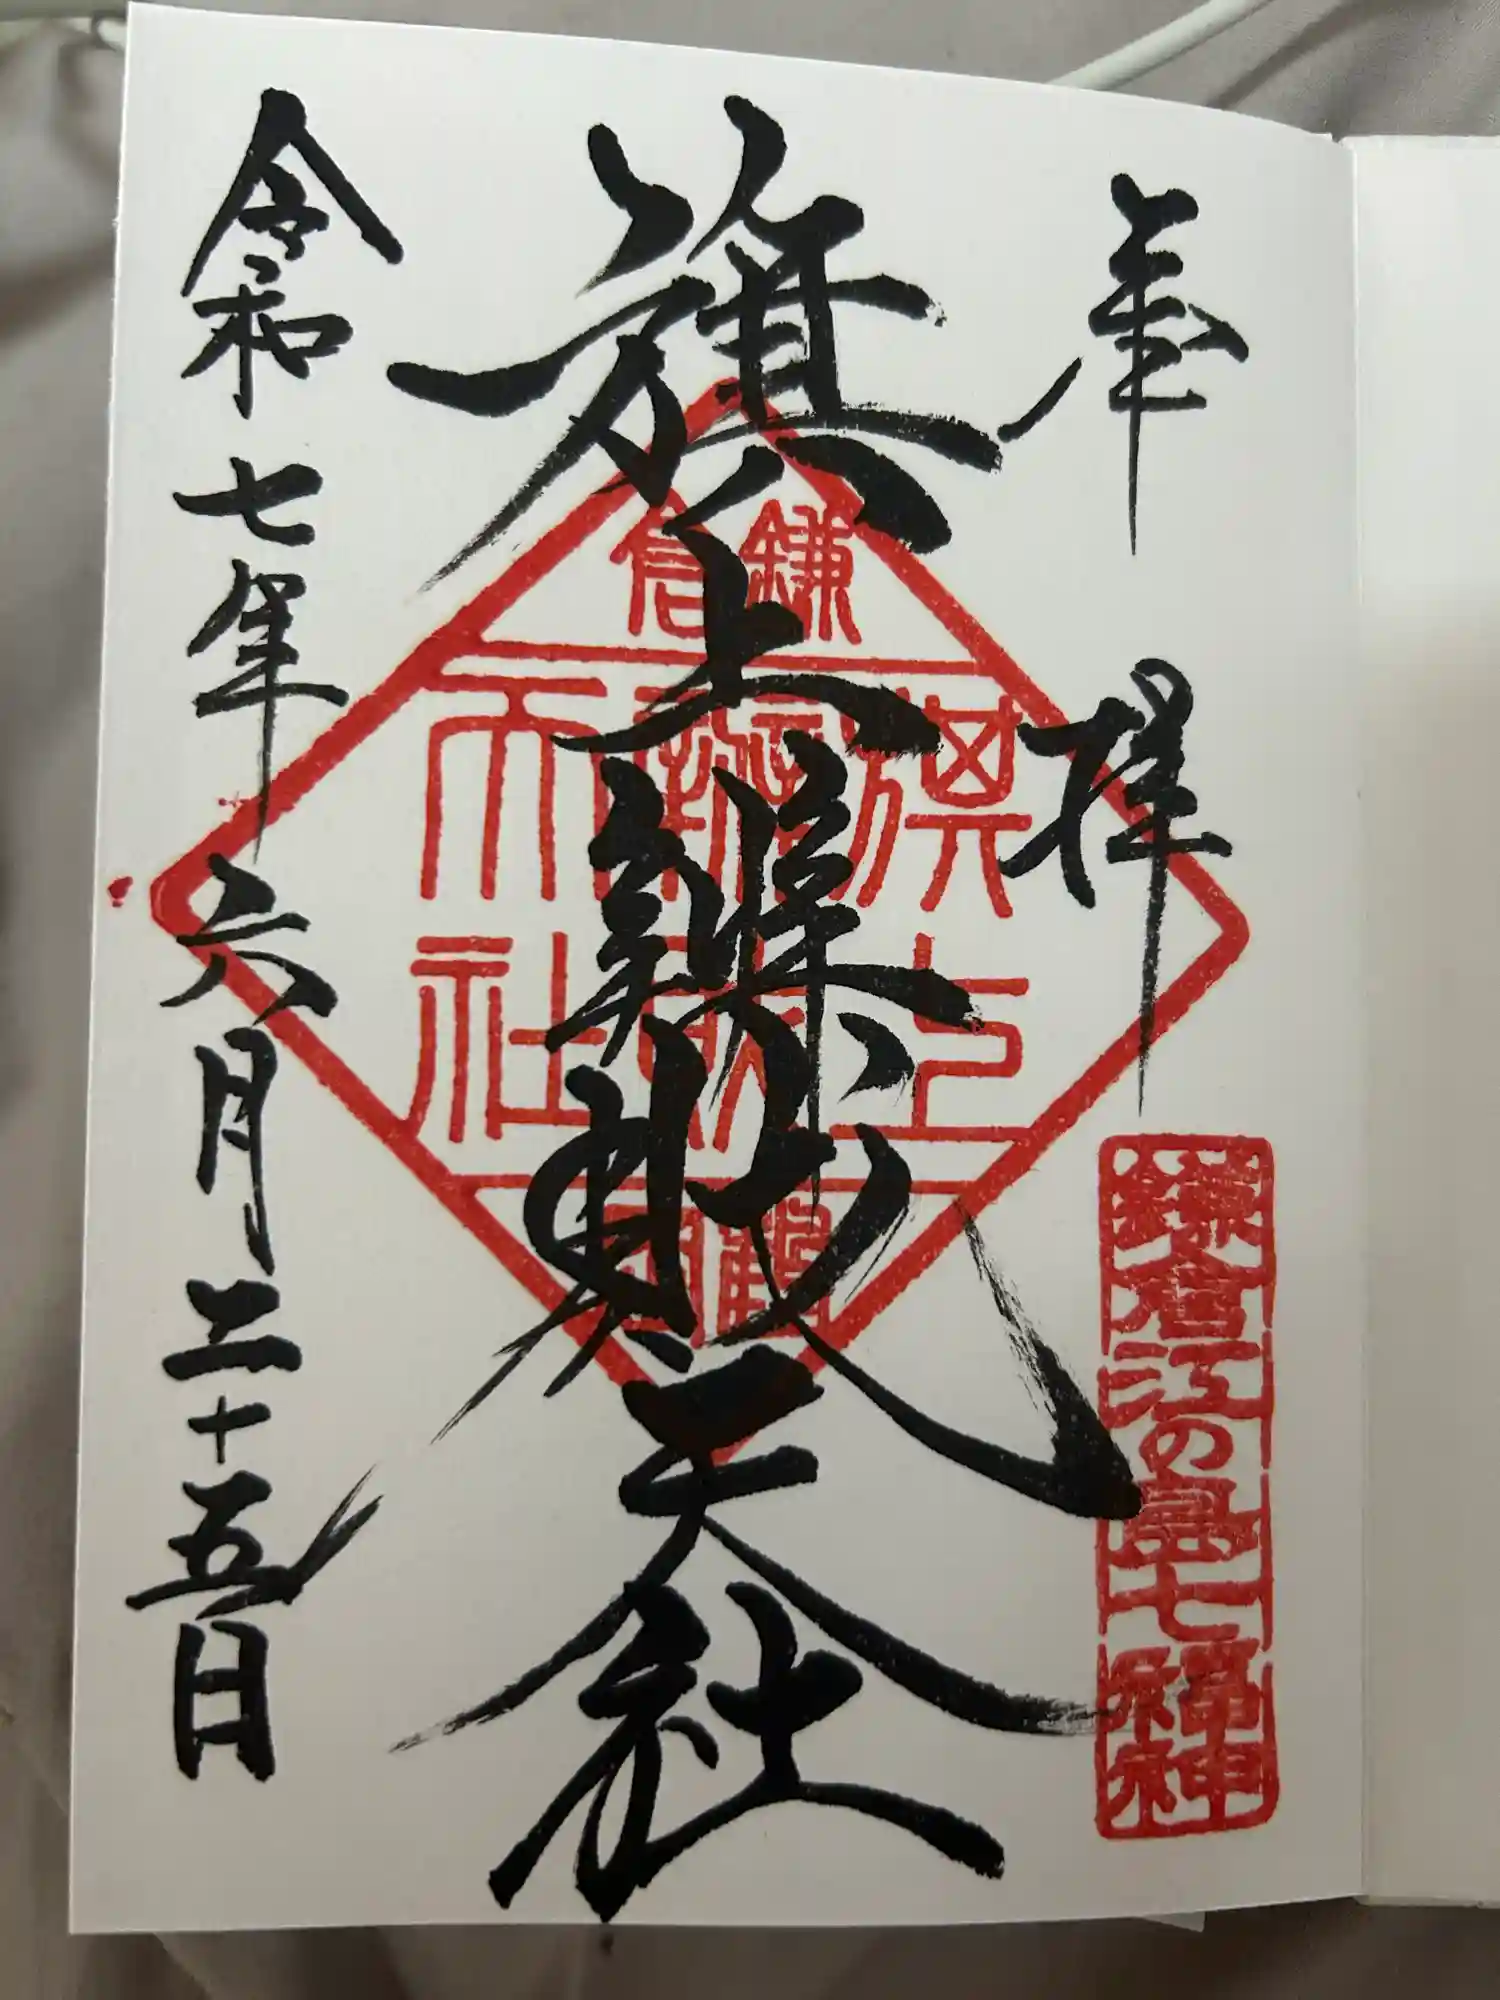 奉拝
鎌倉江の島七福神
旗上辨財天社
鎌倉
旗上
天社
令和七年六月二十五日